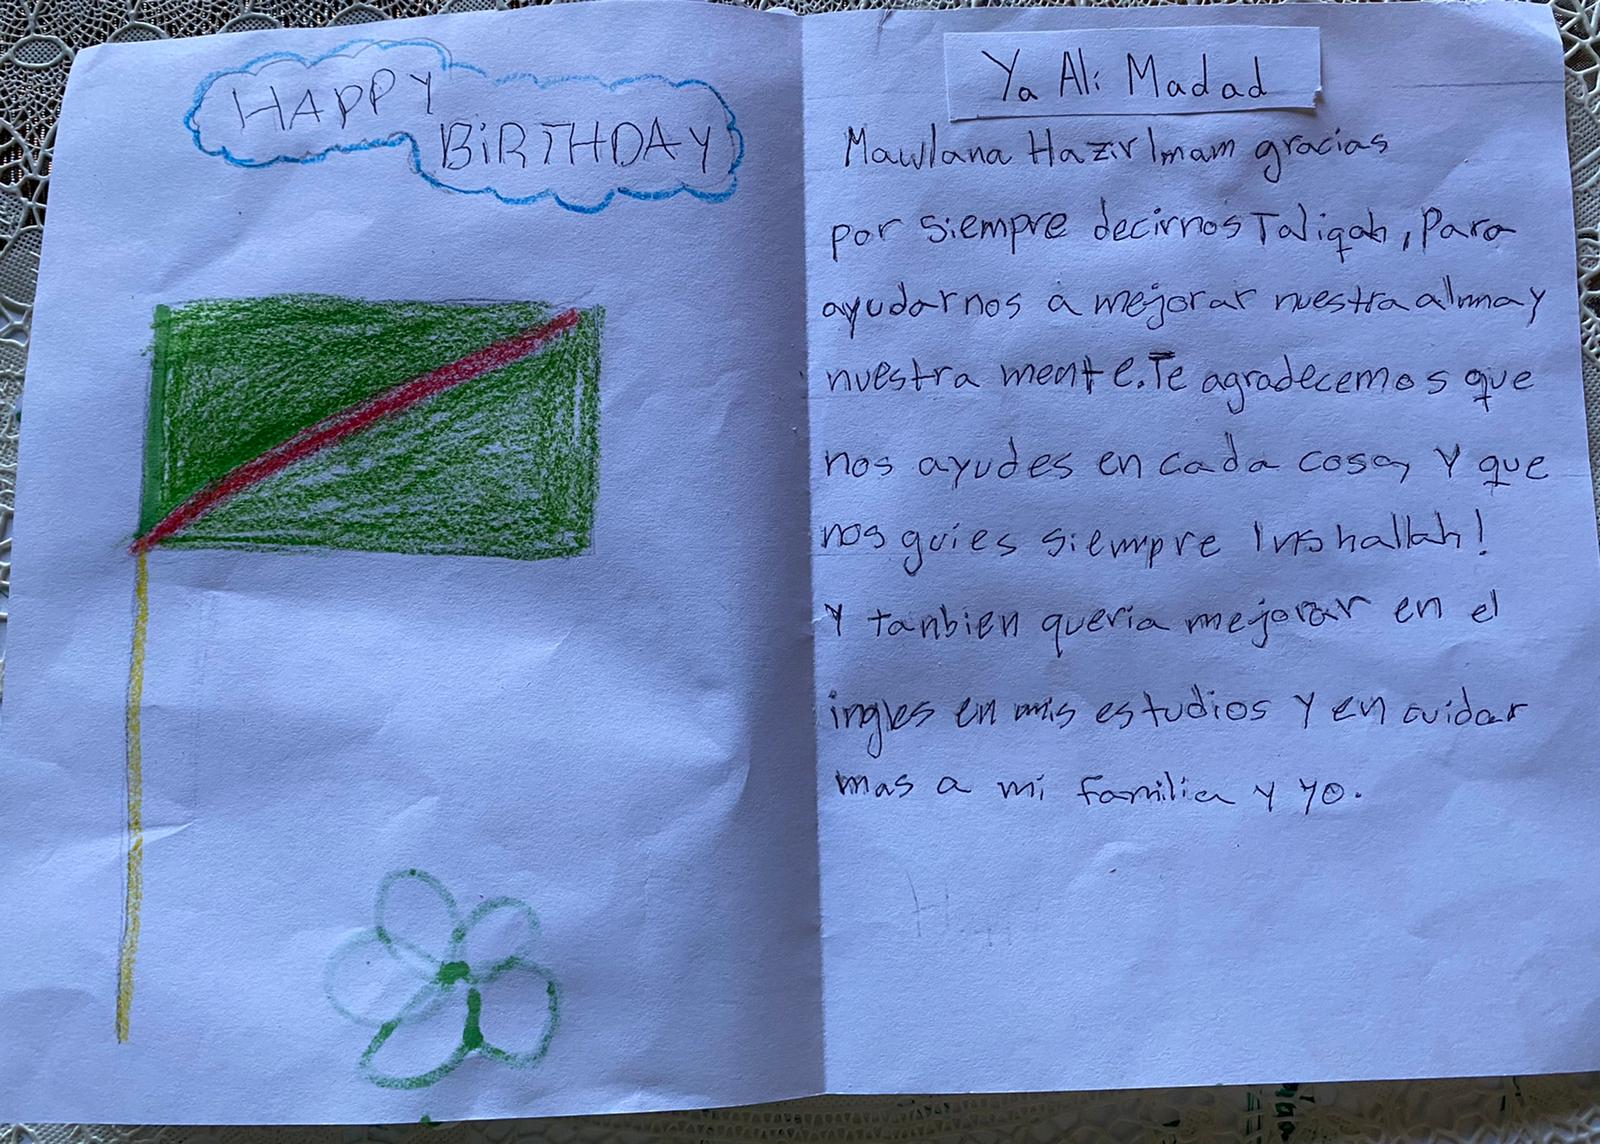 HAPPY
BiRTHDAY
Ya Ali Madad
Mawlana Hazir Imam gracias
por siempre decirnos Taliqah, Para
ayudarnos a mejorar nuestra alma y
nuestra mente. Te agradecemos que
nos ayudes en cada cosa, Y que
nos guies siempre Inshallah!
Y tanbien queria mejorar en el
ingles en mis estudios Y en cuidar
mas a mi familia y yo.